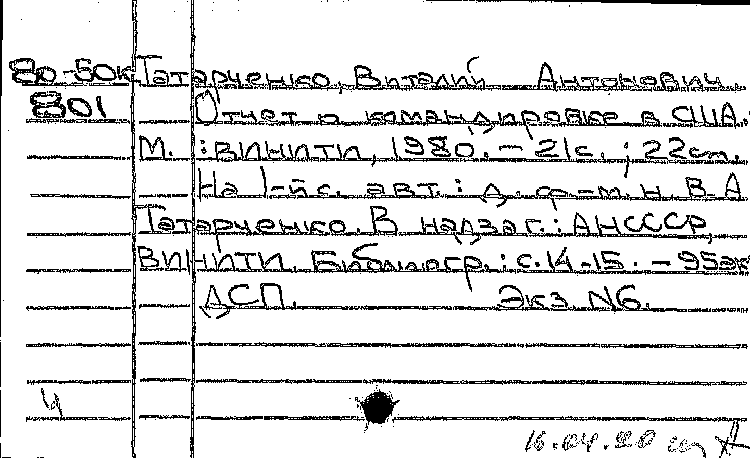 80-50к Татарченко, Виталий Антонович.
801 Отчет о командировке в США.
М. : ВИНИТИ, 1980. – 21с. ; 22см.
На 1-й с. авт.: д. ф-м. н. В.А
Татарченко. В надзаг.: АН СССР,
ВИНИТИ. Библиогр.: с.14-15. – 95эк
ДСП. Экз. N6.
Ч